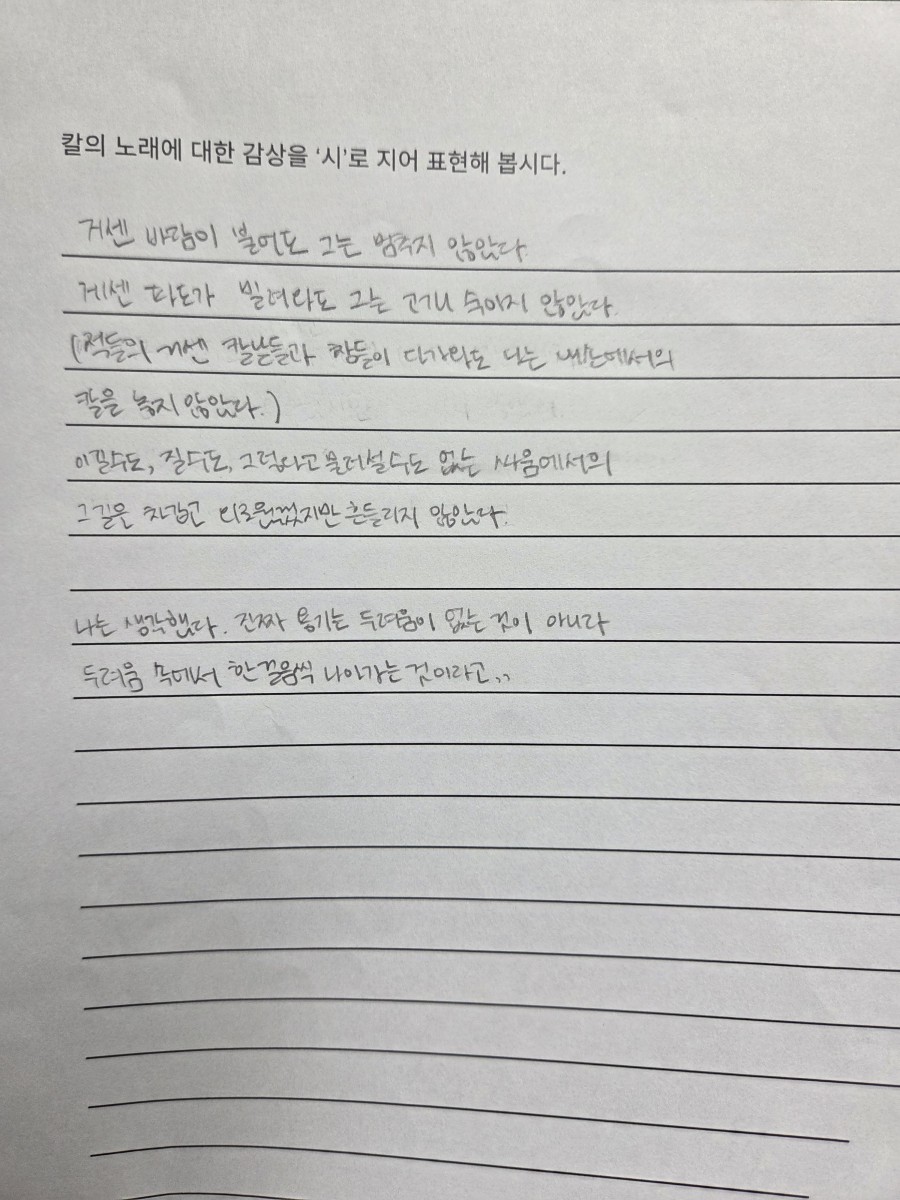 칼의 노래에 대한 감상을 '시'로 지어 표현해 봅시다.
거센 바람이 불어도 그는 멈추지 않았다.
게센 파도가 밀려와도 그는 고개 숙이지 않았다.
(적들의 거센 칼날들과 창들이 다가와도 나는 내손에서의
칼을 놓지 않았다.)
이길수도, 질수도, 그렇다고 물러설수도 없는 싸움에서의
그길은 차갑고 외로웠지만 흔들리지 않았다.
나는 생각했다. 진짜 용기는 두려움이 없는 것이 아니라
두려움 속에서 한걸음씩 나아가는 것이라고..